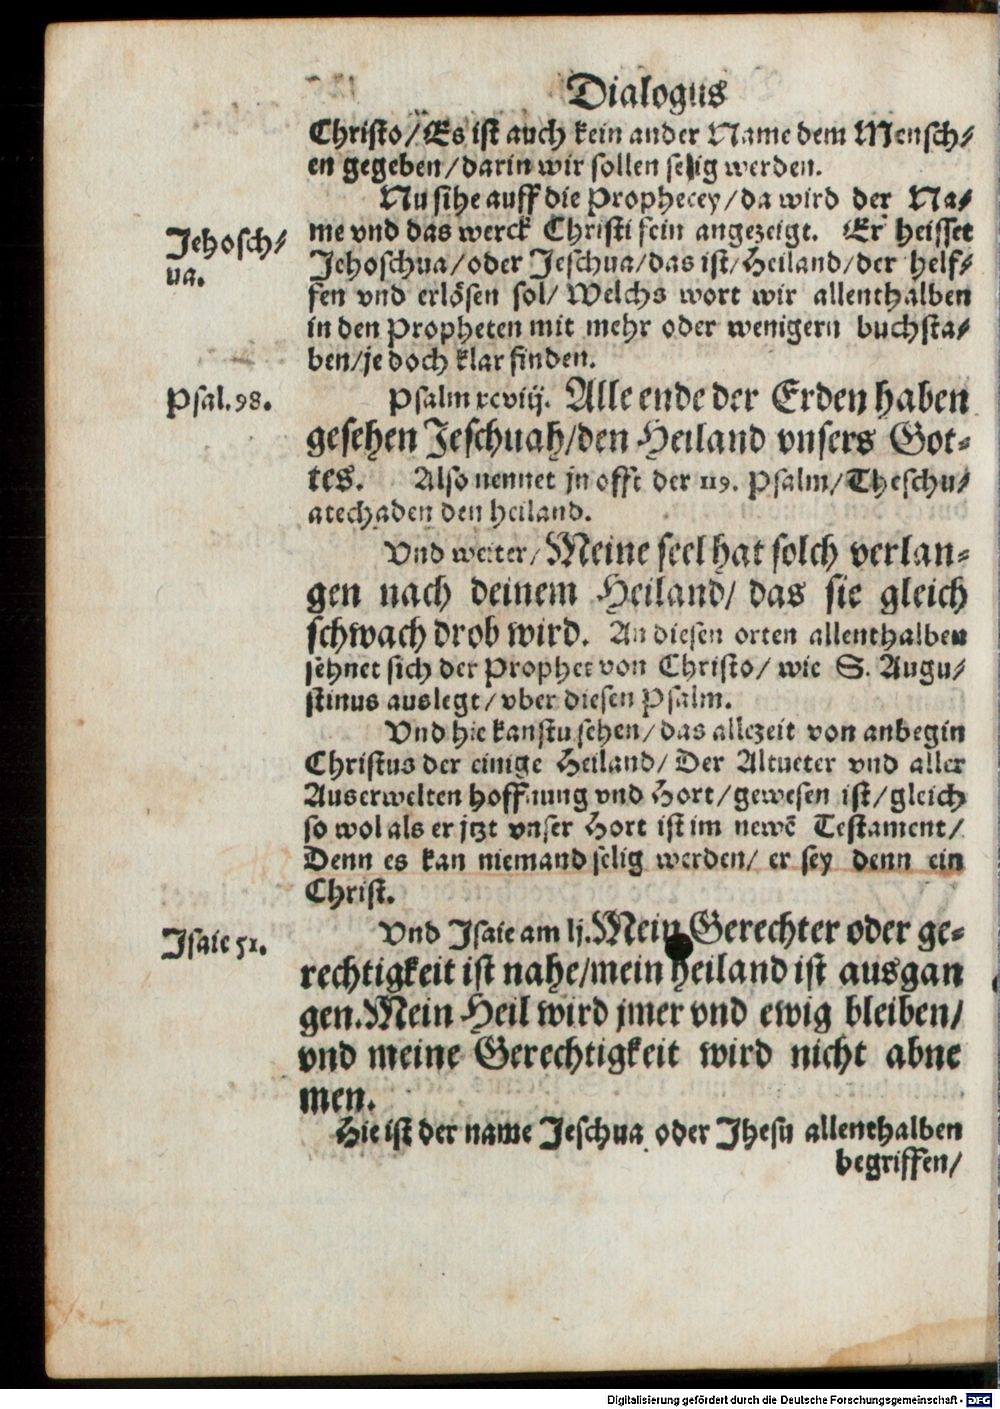 Dialogus
Christo/Es ist auch kein ander Name dem Mensch⸗
en gegeben/darin wir sollen selig werden.
Nu sihe auff die Prophecey/da wird der Na⸗
me vnd das werck Christi fein angezeigt. Er heisset
Jehosch⸗
ua.
Jehoschua/oder Jeschua/das ist/Heiland/der helf⸗
fen vnd erlösen sol/ Welchs wort wir allenthalben
in den Propheten mit mehr oder wenigern buchsta⸗
ben/je doch klar finden.
Psal.98.
Psalm xcviij. Alle ende der Erden haben
gesehen Jeschuah/den Heiland vnsers Got⸗
tes. Also nennet jn offt der 119. Psalm/Theschu⸗
atechaden den heiland.
Vnd weiter/Meine seel hat solch verlan⸗
gen nach deinem Heiland/ das sie gleich
schwach drob wird. An diesen orten allenthalben
sehnet sich der Prophet von Christo/ wie S. Augu⸗
stinus auslegt/vber diesen Psalm.
Vnd hie kanstu sehen/das allezeit von anbegin
Christus der einige Heiland/ Der Altueter vnd aller
Auserwelten hoffnung vnd Hort/gewesen ist/gleich
so wol als er jtzt vnser Hort ist im newē Testament/
Denn es kan niemand selig werden/ er sey denn ein
Christ.
Isaie 51.
Vnd Isaie am lj.Mein Gerechter oder ge⸗
rechtigkeit ist nahe/mein heiland ist ausgan
gen.Mein Heil wird jmer vnd ewig bleiben/
vnd meine Gerechtigkeit wird nicht abne
men.
Hie ist der name Jeschua oder Jhesu allenthalben
begriffen/
Digitalisierung gefördert durch die Deutsche Forschungsgemeinschaft - DFG